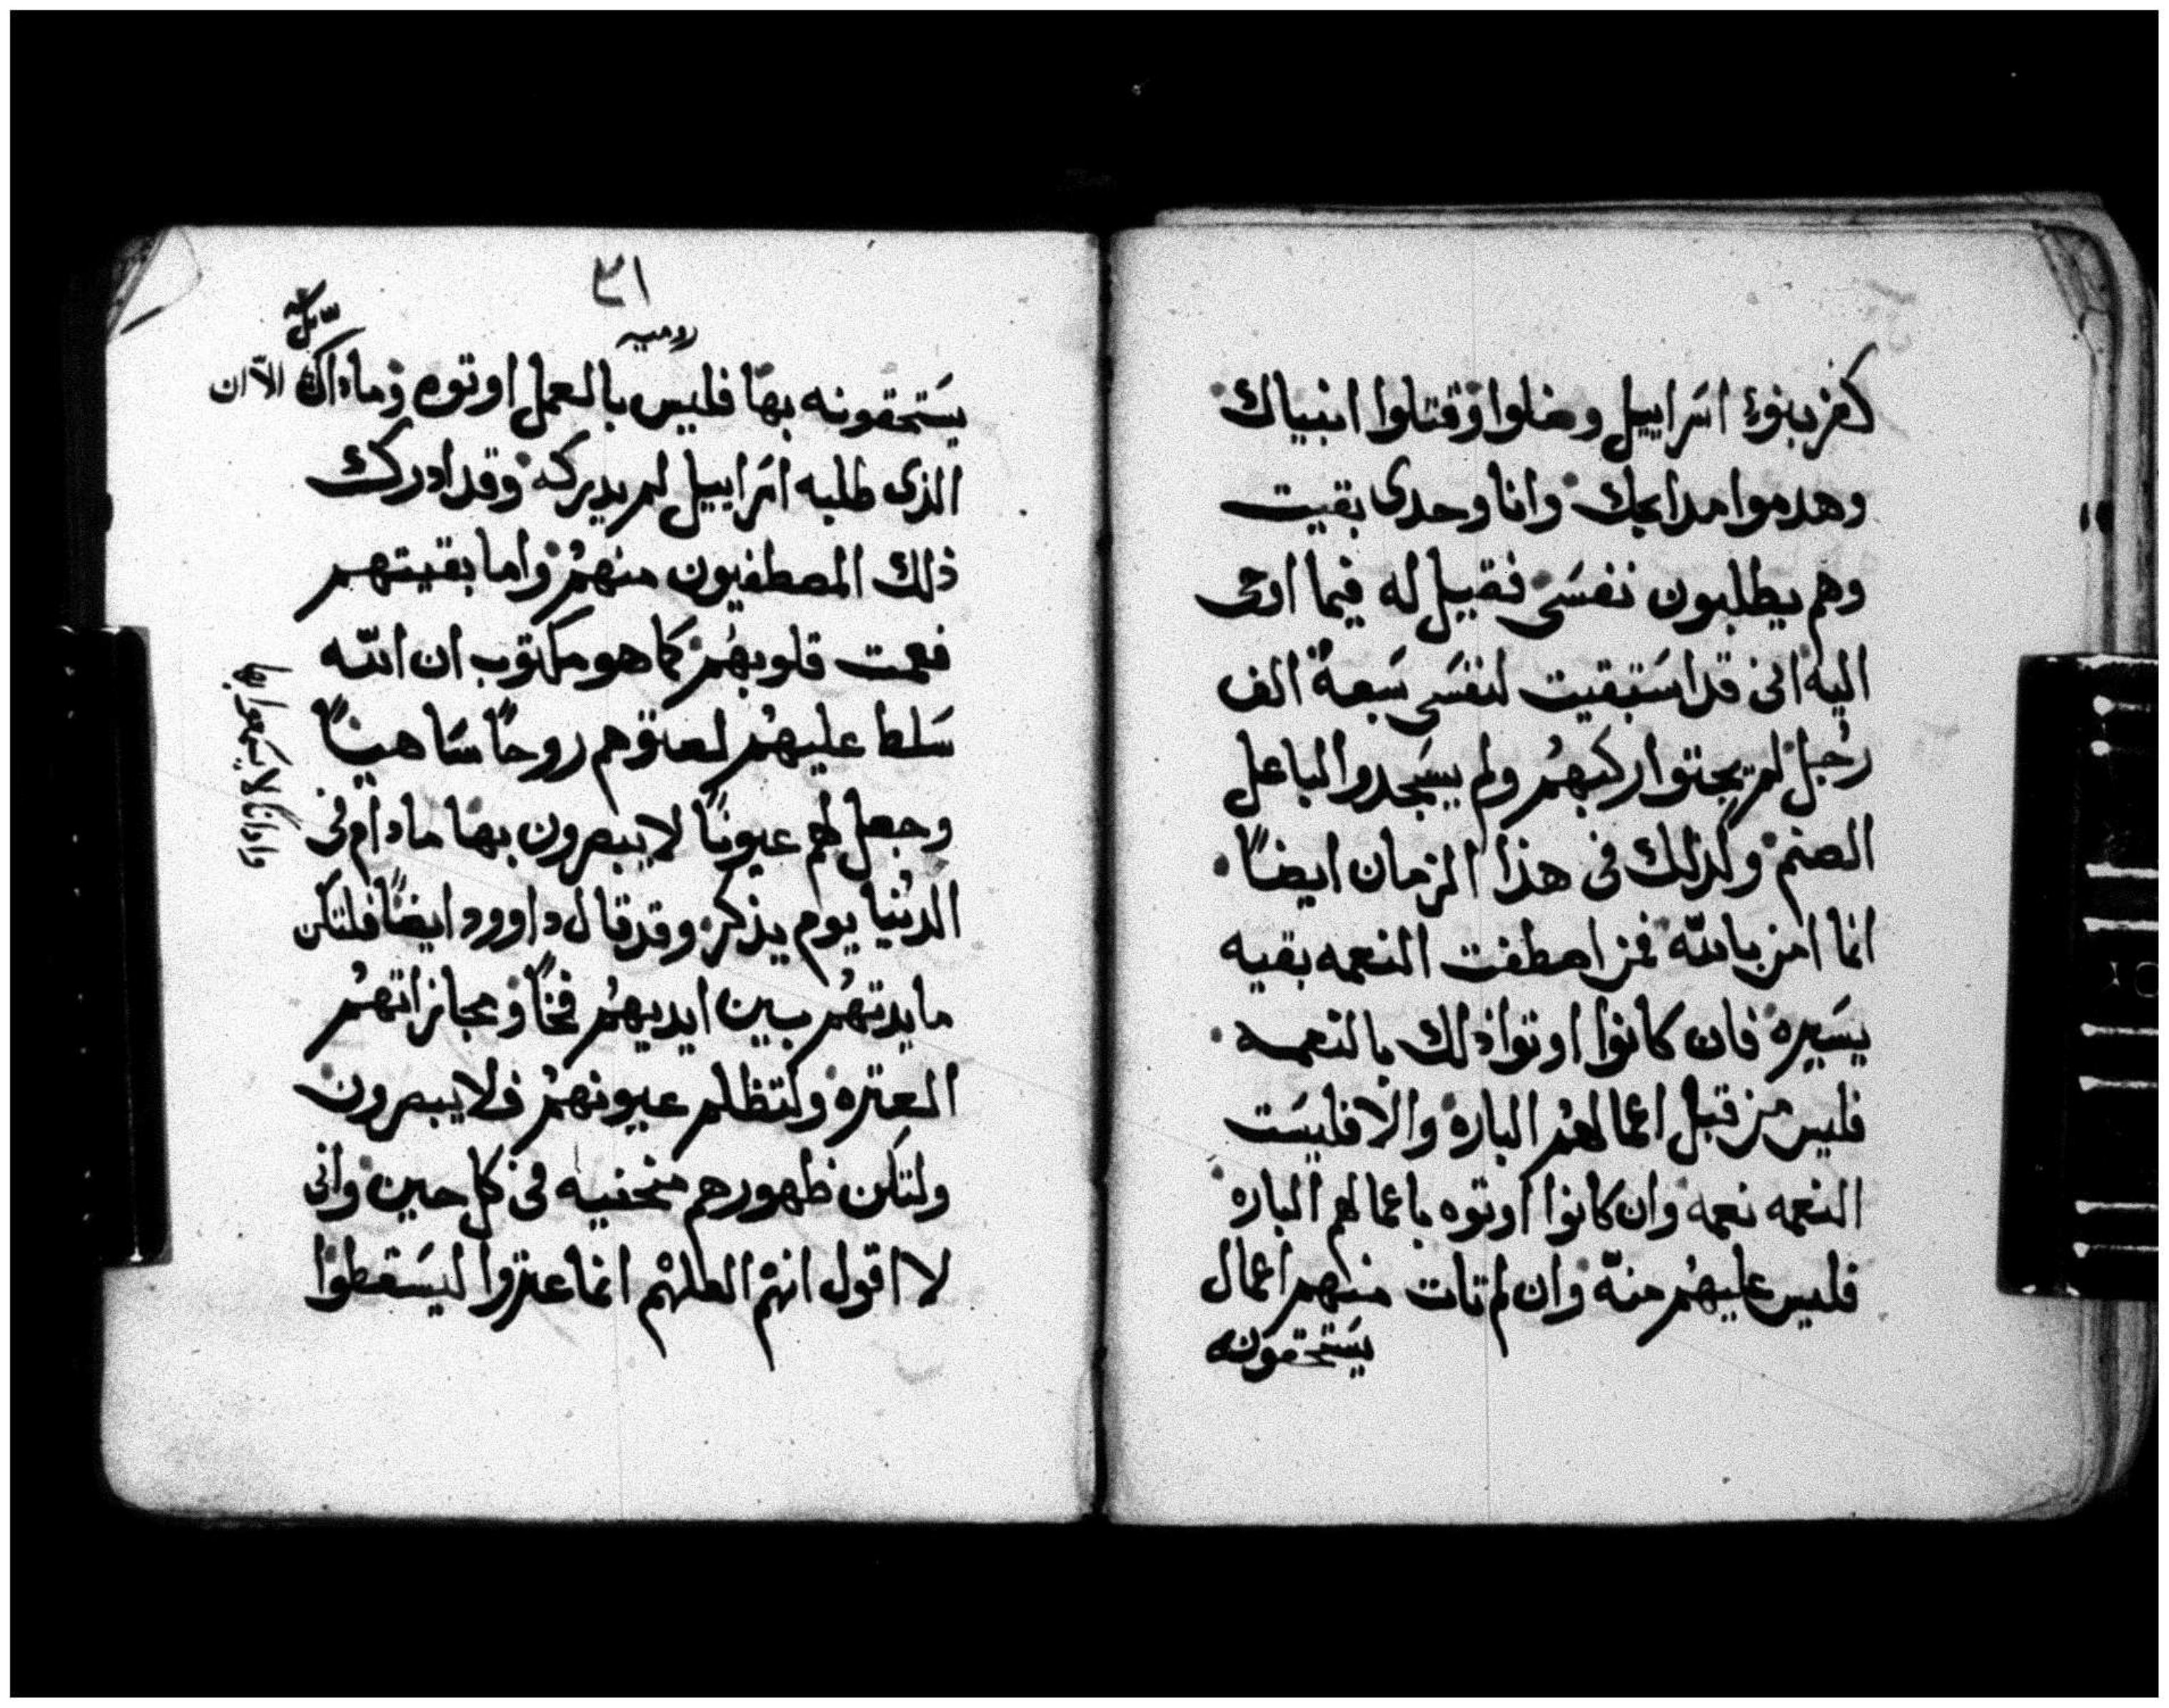 كفر بنوا اسراييل وضلوا وقتلوا انبياك
وهدموا مدابحك وانا وحدى بقيت
وهم يطلبون نفسى فقيل له فيما اوحى
اليه انى قد استبقيت لنفسى سبعة الف
رجل لم يجثوا ركبهم ولم يسجدوا لباعل
الصنم وكذلك فى هذا الزمان ايضاً
انما امن بالله فمن اصطفت النعمه بقيه
يسيره فان كانوا اوتوا ذلك بالنعمه
فليس من قبل اعمالهم الباره والا فليست
النعمه نعمه وان كانوا اوتوه باعمالهم الباره
فليس عليهم منّه وان لم تات منهم اعمال
يستحقونه
٣١
روميه
يستحقونه بها فليس بالعمل اوتوه وما داك الاّ ان
الذى طلبه اسراييل لم يدركه وقد ادرك
ذلك المصطفيون منهم واما بقيتهم
فعمت قلوبهم كما هو مكتوب ان الله
سلط عليهم لعتوهم روحاً ساهياً
وجعل لهم عيوناً لا يبصرون بها ما دام فى
الدنيا يوم يذكر وقد قال داوود ايضاً فلتكن
مايدتهم بين ايديهم فخاً ومجازاتهم
العتره ولتظلم عيونهم فلا يبصرون
ولتكن ظهورهم منحنيه فى كل حين وانى
لا اقول انهم العلهم انما عتروا ليسقطوا
واداناً لا يسمعوا بها